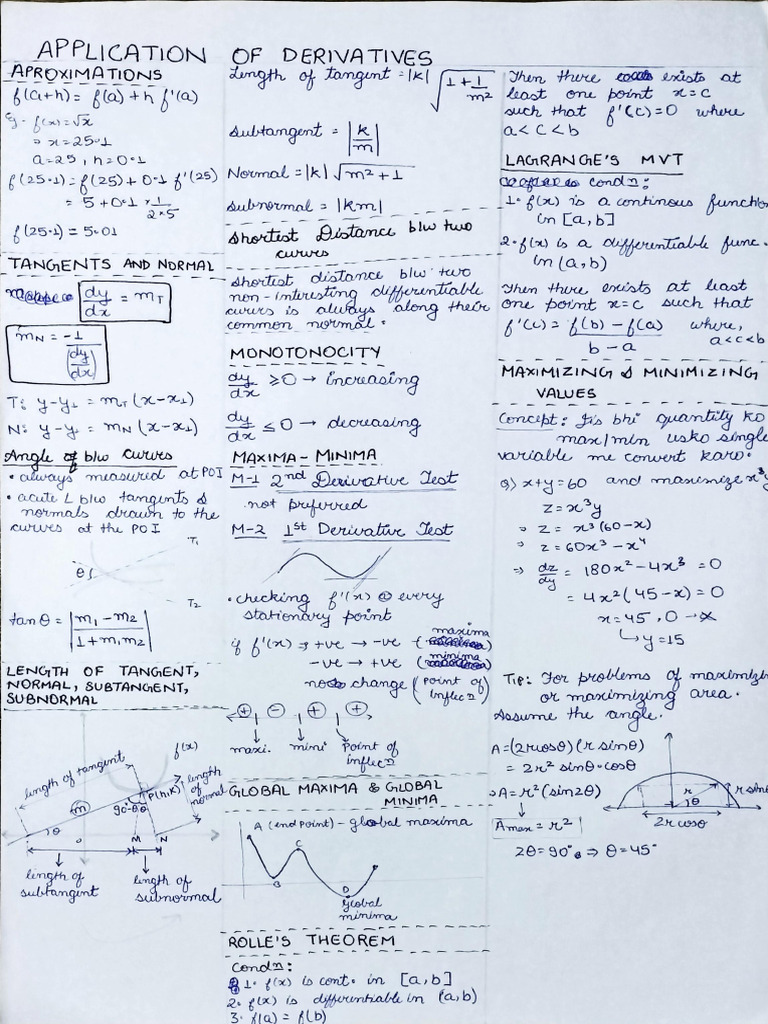 APPLICATION OF DERIVATIVES
APROXIMATIONS
f(a+h) = f(a) + h f'(a)
eg. f(x) = √x
⇒ x = 25.1
a = 25, h = 0.1
f(25.1) = f(25) + 0.1 f'(25)
= 5 + 0.1 × 1/(2×5)
f(25.1) = 5.01
TANGENTS AND NORMAL
dy/dx = mT
mN = -1/(dy/dx)
T: y-y1 = mT (x-x1)
N: y-y1 = mN (x-x1)
Angle of b/w curves
• always measured at POI
• acute ∠ b/w tangents &
normals drawn to the
curves at the POI
T1
θ
T2
tanθ = |(m1 - m2)/(1 + m1m2)|
LENGTH OF TANGENT,
NORMAL, SUBTANGENT,
SUBNORMAL
f(x)
length of tangent
P(h,k)
length of normal
m
90°-θ
θ
θ
O
M
N
length of subtangent
length of subnormal
Length of tangent = |k| √(1 + 1/m²)
Subtangent = |k/m|
Normal = |k| √(m² + 1)
Subnormal = |km|
Shortest Distance b/w two
curves
Shortest distance b/w two
non-interesting differentiable
curves is always along their
common normal.
MONOTONOCITY
dy/dx ≥ 0 → increasing
dy/dx ≤ 0 → decreasing
MAXIMA - MINIMA
M-1 2nd Derivative Test
not preferred
M-2 1st Derivative Test
• checking f'(x) @ every
stationary point
if f'(x) ⇒ +ve → -ve (maxima)
-ve → +ve (minima)
no change (point of inflecn)
+ - + +
maxi. mini Point of
inflecn
GLOBAL MAXIMA & GLOBAL
MINIMA
A (end point) - global maxima
C
B
D
Global
minima
ROLLE'S THEOREM
Condn:
1. f(x) is cont. in [a,b]
2. f(x) is differentiable in (a,b)
3. f(a) = f(b)
Then there exists at
least one point x=c
such that f'(c)=0 where
a<c<b
LAGRANGE'S MVT
condn:
1. f(x) is a continous function
in [a,b]
2. f(x) is a differentiable func.
in (a,b)
Then there exists at least
one point x=c such that
f'(c) = (f(b) - f(a))/(b - a) where,
a<c<b
MAXIMIZING & MINIMIZING
VALUES
Concept: Jis bhi quantity ko
max/min usko single
variable me convert karo.
Q) x+y=60 and maximize x³y
z = x³y
⇒ z = x³(60-x)
⇒ z = 60x³ - x⁴
⇒ dz/dy = 180x² - 4x³ = 0
= 4x²(45-x) = 0
x = 45, 0 → ×
↳ y = 15
TIP: For problems of maximizi
or maximizing area.
Assume the angle.
A = (2rcosθ)(r sinθ)
= 2r² sinθ·cosθ
⇒ A = r²(sin2θ)
Amax = r²
2θ = 90° ⇒ θ = 45°
r
θ
r sinθ
2r cosθ